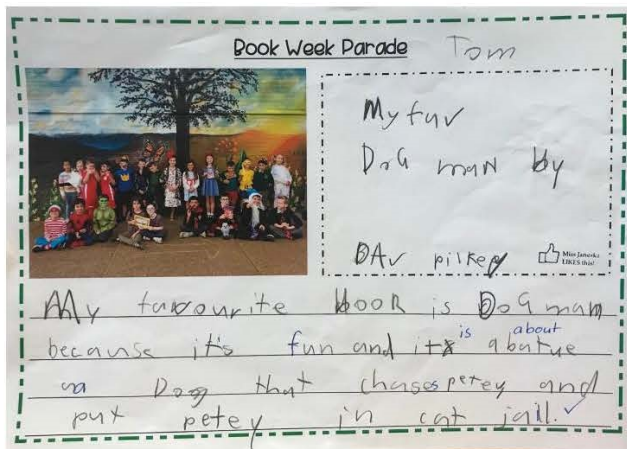 Book Week Parade Tom
My fav
DoG man by
DAv pilkey
Miss Janeski
LIKES this!
My favourite book is DoG man
because it's fun and it is about
a Dog that chases petey and
put petey in cat jail.